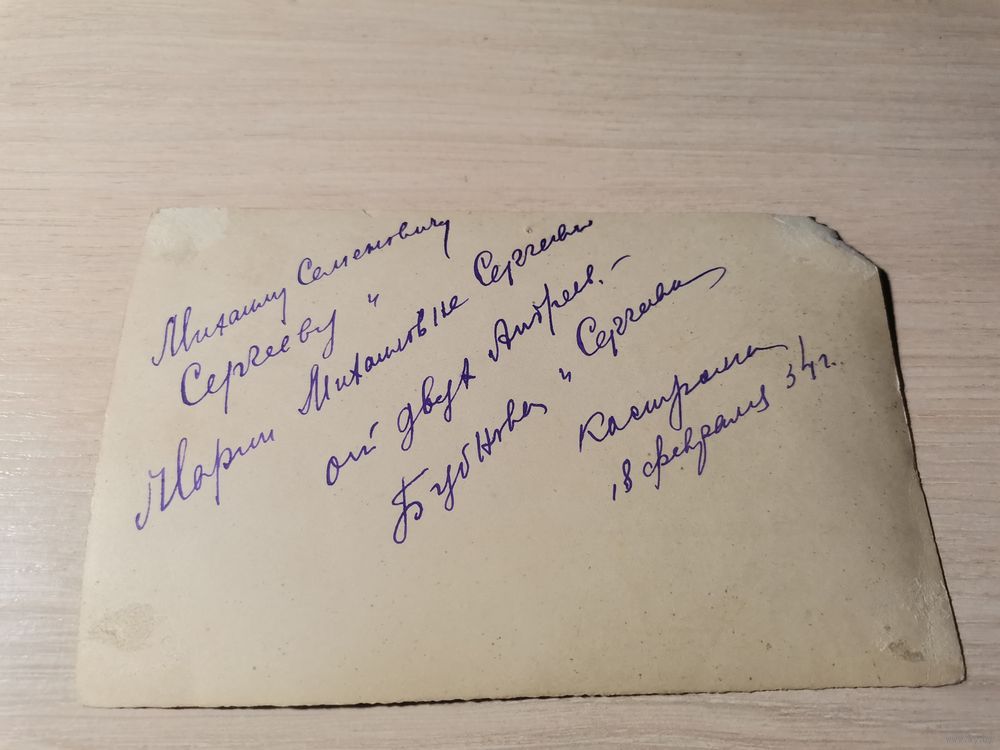 Михаилу Семеновичу
Сергееву и
Марии Михайловне Сергеевой
от двух Андреев. –
Бубнова и Сергеева
Кострома
18 февраля 34 г.